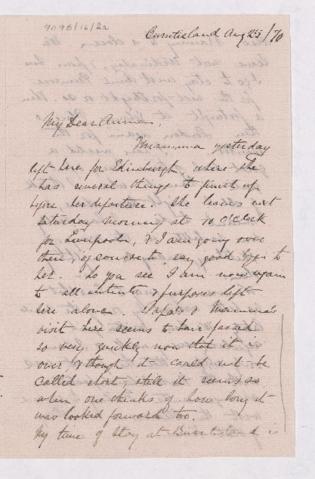 Aug 25/70
My Dear
Mamma yesterday
left here for Edinburgh, where she
has several things to finish up
before her departure. She leaves next
Saturday morning at 10 O'Clock
for Liverpool, & I am going over
then, of course to say good bye to
her. So you see I am now again
to all intents & purposes left
here alone. Papa's & Mamma's
visit here seems to have passed
so very quickly now that it is
over & though it could not be
called short, still it seems so
when one thinks of how long it
was looked forward too.
My time of stay at Burntisland is